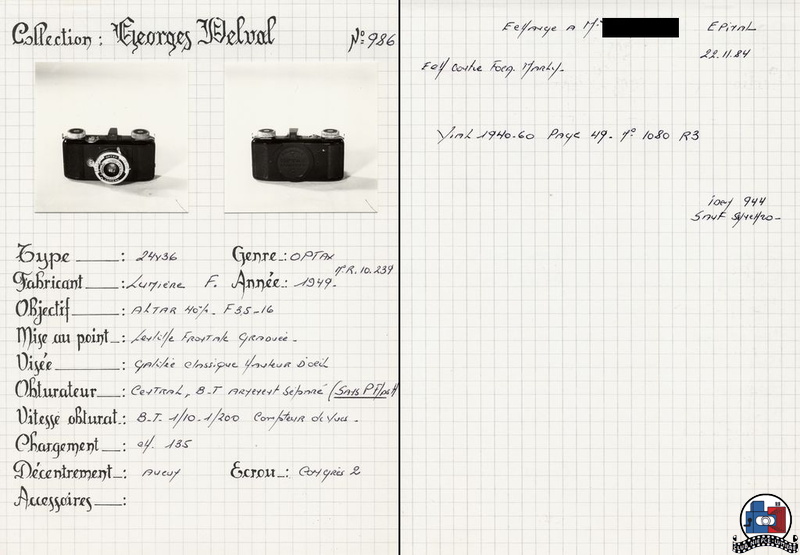 Collection : Georges Delval N° 986
Type : 24x36 Genre : OPTAX
N° R. 10.239
Fabricant : Lumière F. Année : 1949.
Objectif : ALTAR 40%. F 3,5-16
Mise au point : Lentille Frontale Graduée.
Visée : Galilée classique Hauteur D'oeil
Obturateur : Central, B-T armement séparé (Sans
Vitesse obturat. : B.T. 1/10-1/200 Compteur de Vues.
Chargement : 135
Décentrement : Aucun Ecrou : Congrès 2
Accessoires :
Echange A Mr EPINAL
22.11.84
Ech Contre Foca Marly.
Vial 1940-60 Page 49. N° 1080 R3
idem 944
Sauf Synchro-